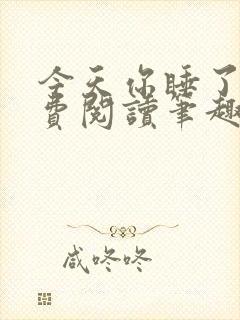 今天你睡了
費閱讀筆趣
咸咚咚